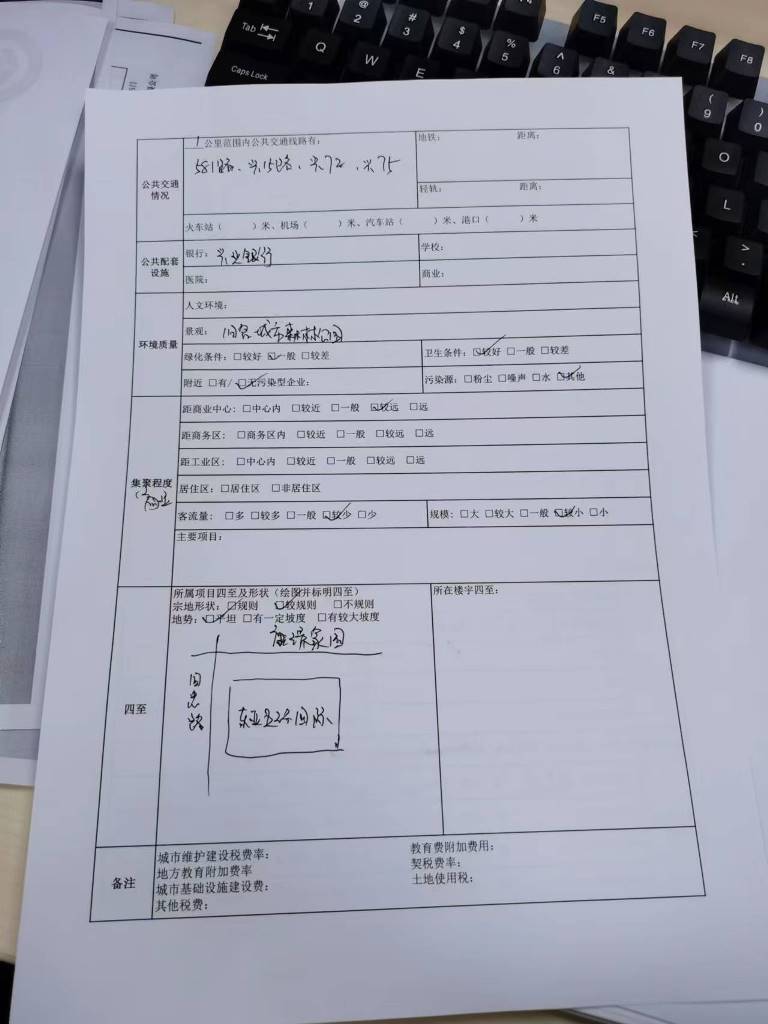 1公里范围内公共交通线路有:
地铁: 距离:
581路、兴15路、兴72、兴75
轻轨: 距离:
公共交通情况
火车站( )米、机场( )米、汽车站( )米、港口( )米
公共配套设施
银行: 兴业银行
学校:
医院:
商业:
环境质量
人文环境:
景观: 旧宫城市森林公园
绿化条件: □较好 ☑一般 □较差
卫生条件: ☑较好 □一般 □较差
附近 □有/☑无污染型企业:
污染源: □粉尘 □噪声 □水 ☑其他
集聚程度
(商业
距商业中心: □中心内 □较近 □一般 ☑较远 □远
距商务区: □商务区内 □较近 □一般 □较远 □远
距工业区: □中心内 □较近 □一般 □较远 □远
居住区: □居住区 □非居住区
客流量: □多 □较多 □一般 ☑较少 □少
规模: □大 □较大 □一般 ☑较小 □小
主要项目:
四至
所属项目四至及形状(绘图并标明四至)
宗地形状: ☑规则 ☑较规则 □不规则
地势: ☑平坦 □有一定坡度 □有较大坡度
家园
旧忠路
东亚 国际
所在楼宇四至:
备注
城市维护建设税费率:
教育费附加费用:
地方教育附加费率
契税费率:
城市基础设施建设费:
土地使用税:
其他税费:
Tab
Caps Lock
1
@
2
#
3
$
4
%
5
^
6
&
(
9
)
0
Q
W
E
O
L
>
.
Alt
F5
F6
F7
F8